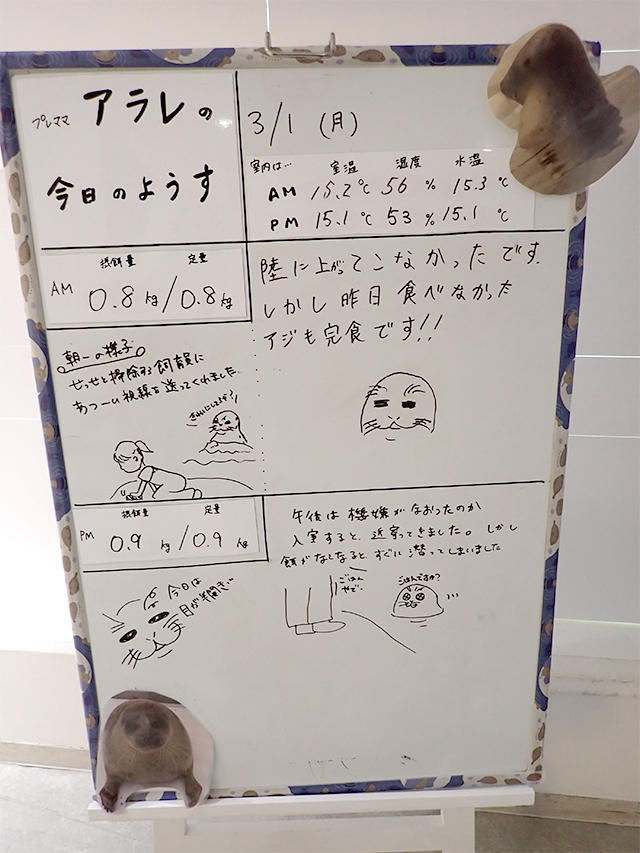 プレママ アラレの
今日のようす
3/1 (月)
室内は… 室温 湿度 水温
AM 15.2℃ 56% 15.3℃
PM 15.1℃ 53% 15.1℃
AM
摂餌量 定量
0.8kg/0.8kg
陸に上がってこなかったです。
しかし昨日食べなかった
アジも完食です!!
朝一の様子
せっせと掃除する飼育員に
あつーい視線を送ってくれました
きれいにしてる?
PM
摂餌量 定量
0.9kg/0.9kg
午後は機嫌がなおったのか
入室すると、近寄ってきました。しかし
餌がなくなると、すぐに潜ってしまいました
今日は
目が半開き…
ごはん
やで…
ごはんですか?